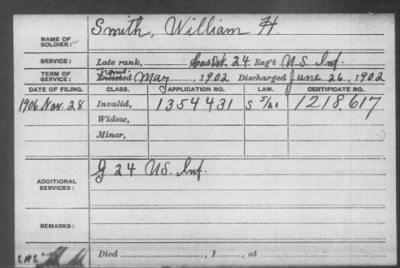 NAME OF SOLDIER: Smith, William H.
SERVICE: Late rank, 24 Reg't U.S. Inf.
TERM OF SERVICE: Enlisted May , 1902 Discharged June 26, 1902
DATE OF FILING. CLASS. APPLICATION NO. LAW. CERTIFICATE NO.
1906 Nov. 28 Invalid, 1354431 1218.617
Widow,
Minor,
ADDITIONAL SERVICES: G 24 U.S. Inf.
REMARKS:
Died , 1 , at